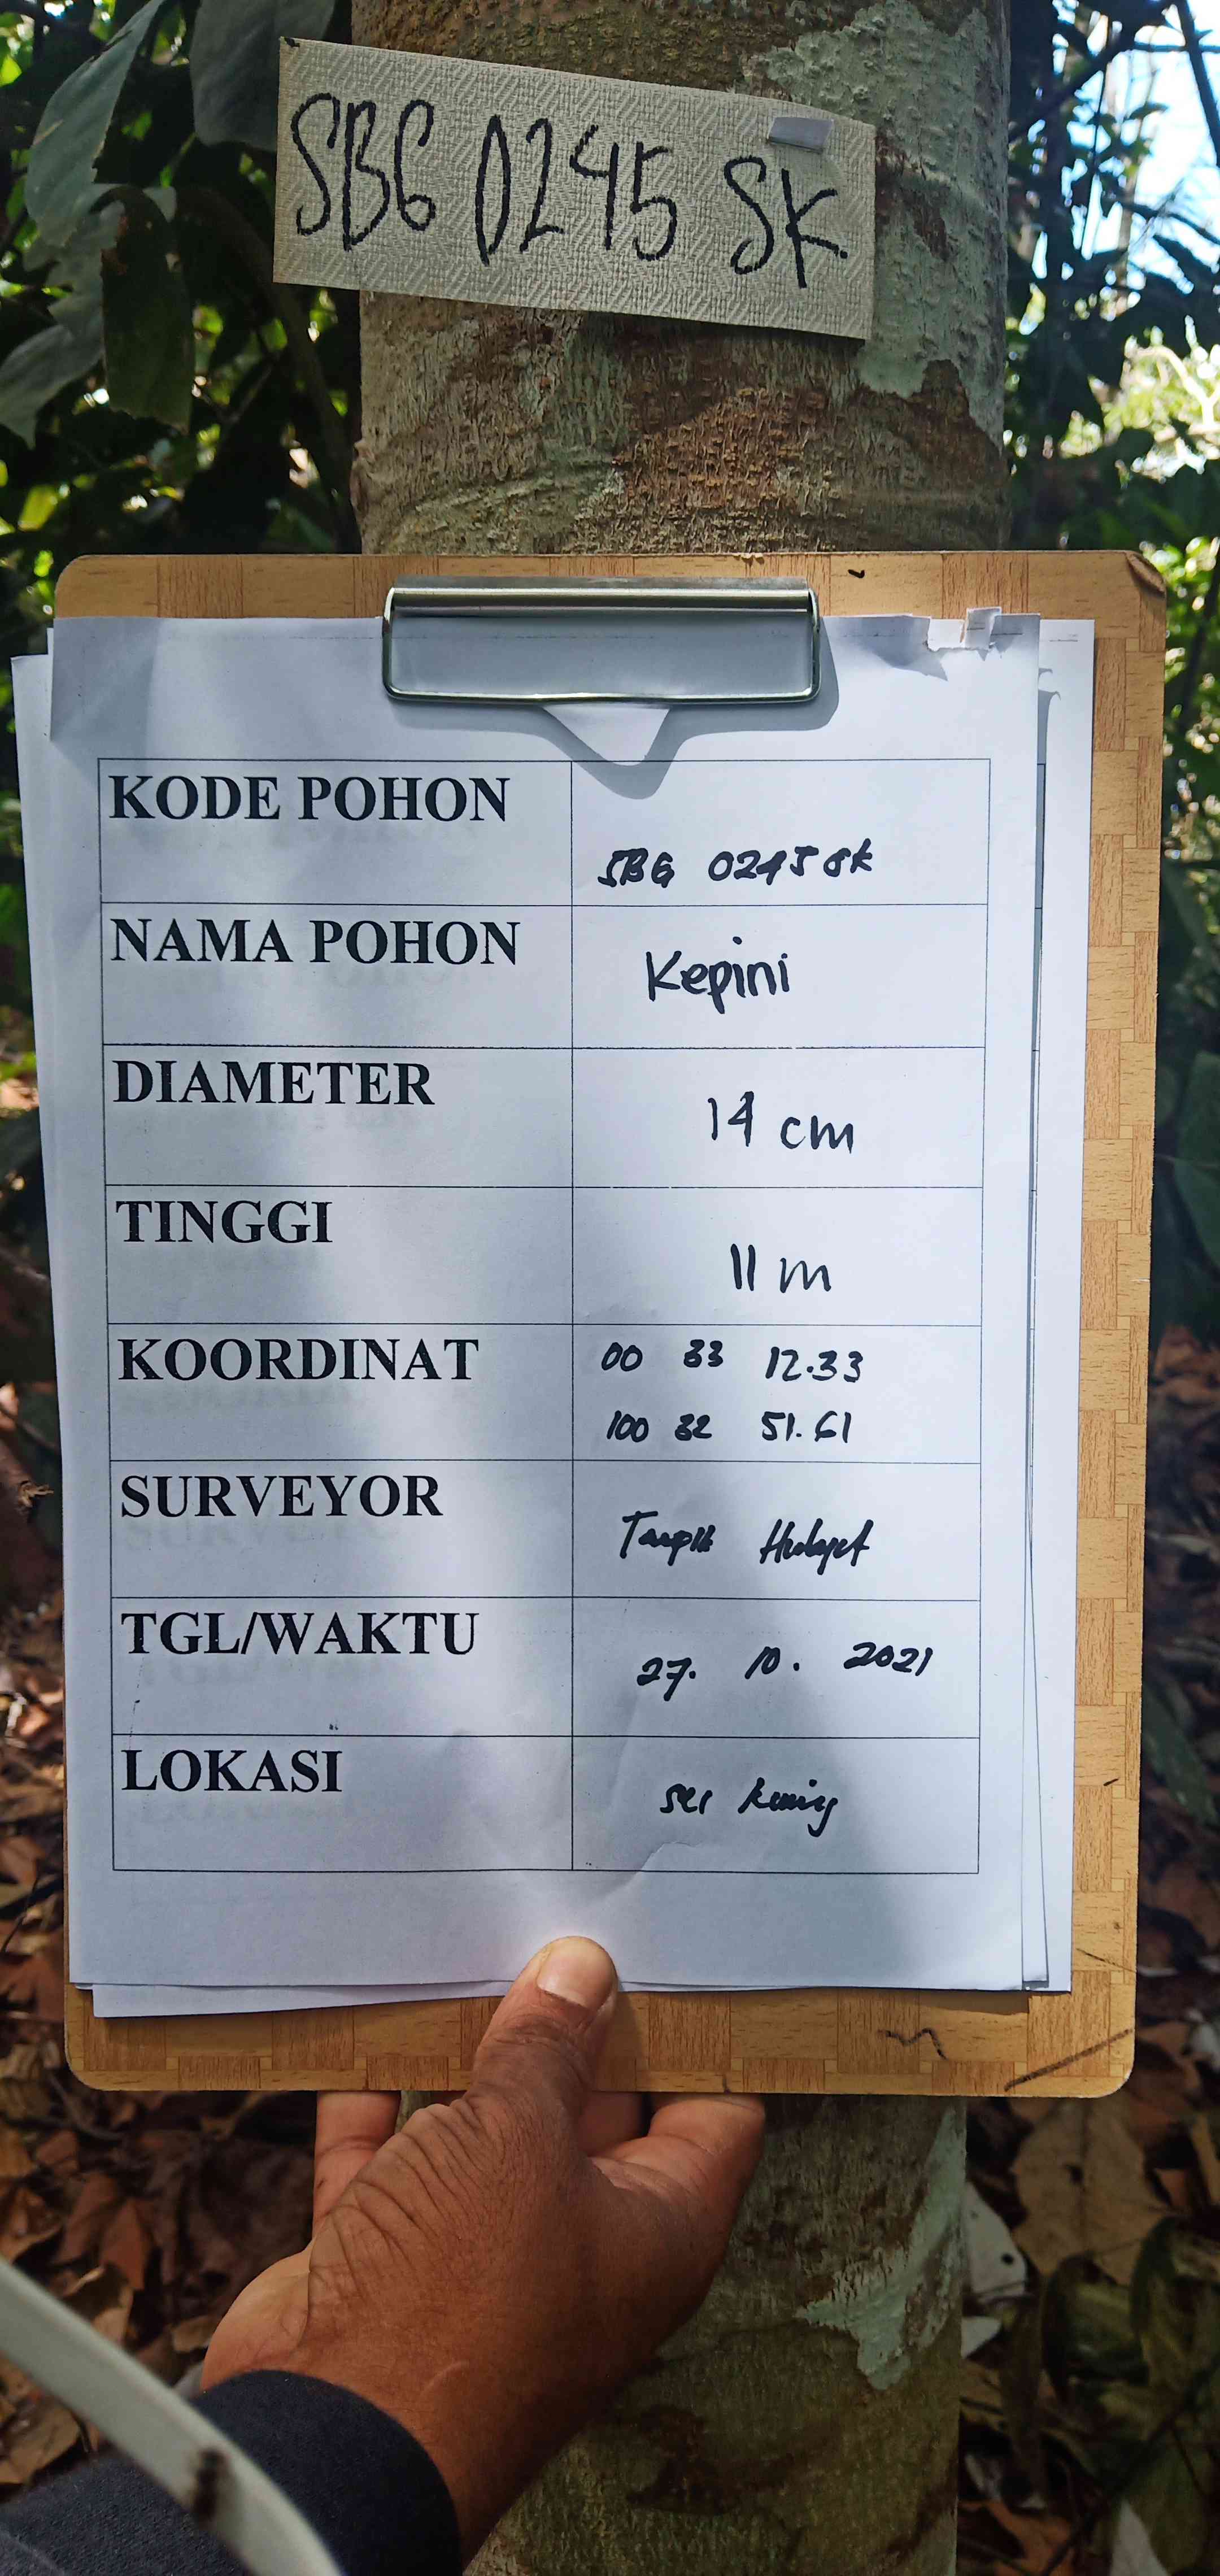 SBG 0245 SK
KODE POHON
SBG 0245 SK
NAMA POHON
Kepini
DIAMETER
14 cm
TINGGI
11 m
KOORDINAT
00 33 12.33
100 32 51.61
SURVEYOR
TGL/WAKTU
27. 10. 2021
LOKASI